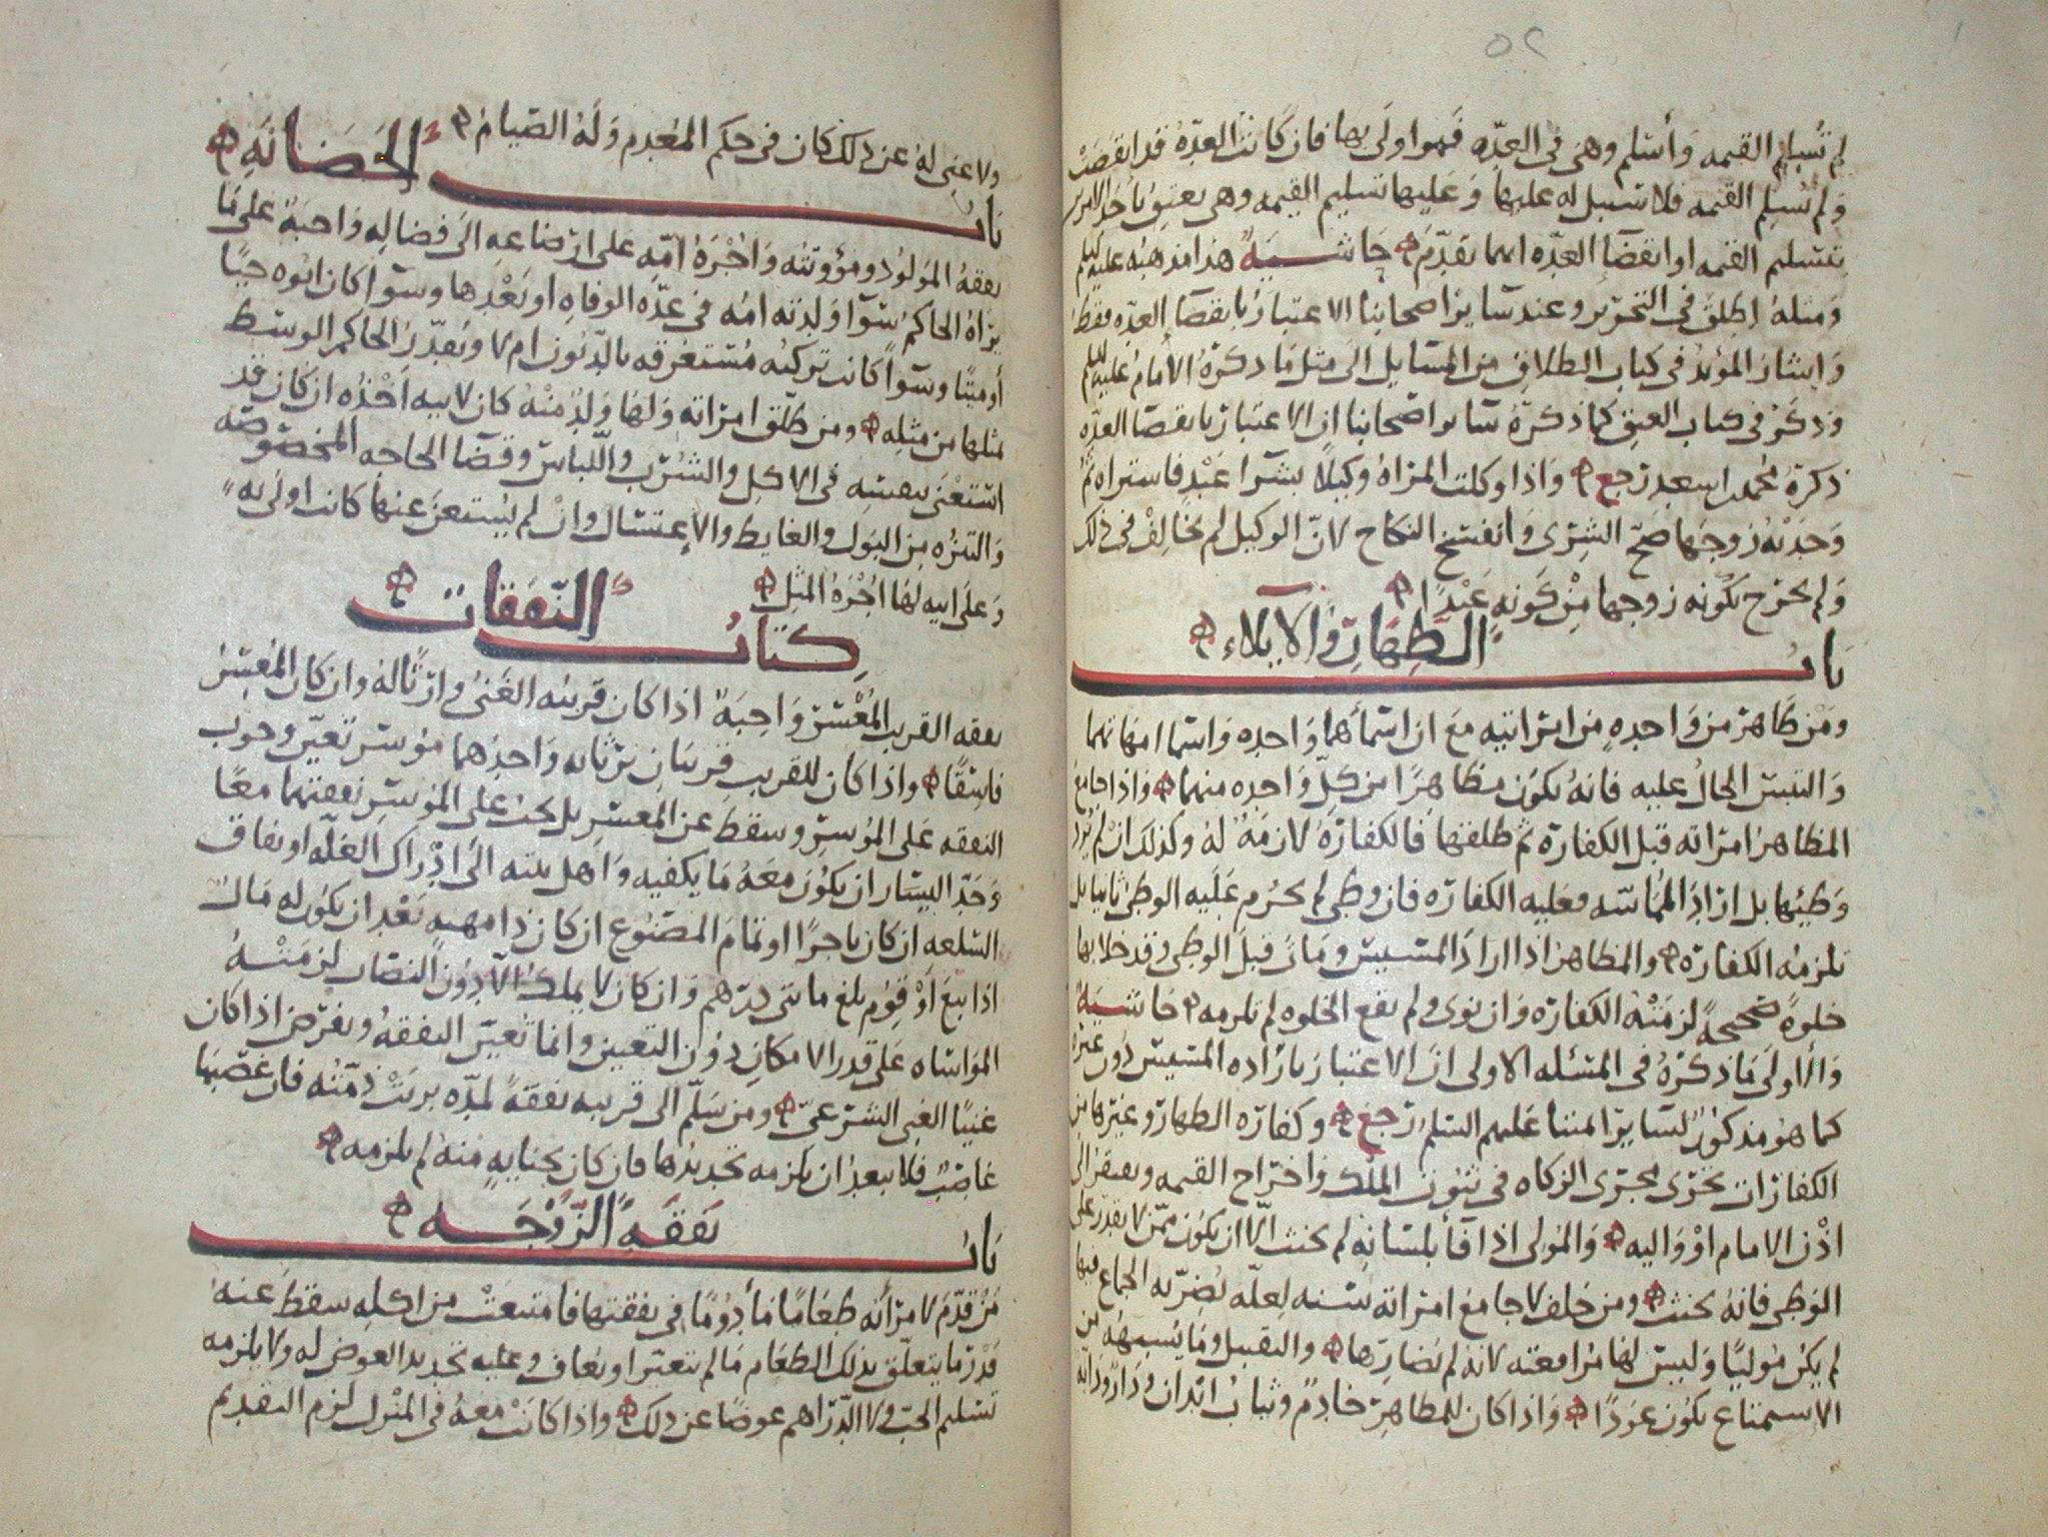 ٥٢
لم تسلم القيمه وأسلم وهي في العده فهو اولى بها فان كانت العدة قد انقضت
ولم تسلم القيمه فلا سبيل له عليها وعليها تسليم القيمه وهي بعتق باحد الامرين
بتسليم القيمه او انقضا العده ايهما تقدم حاشية هذا مذهبه عليلم
ومثله اطلق في التحرير وعند ساير اصحابنا الاعتبار بانقضا العده فقط
واشار المؤيد في كتاب الطلاق من المسايل الى مثل ما ذكره الامام عليلم
وذكر في كتاب العتق كما ذكره ساير اصحابنا ان الاعتبار بانقضا العده
ذكره محمد اسعد رجع واذا وكلت المراة وكيلا بشرا عبد فاشتراه ثم
وجدته زوجها صح الشرى وانفسخ النكاح لان الوكيل لم يخالف في ذلك
ولم يخرج بكونه زوجها من كونه عبدا
باب الظهار والايلاء
ومن ظاهر من واحده من امراتيه مع ان اسمأهما واحده واسما امهاتهما
والتبس الحال عليه فانه يكون مظاهرا من كل واحده منهما واذا جامع
المظاهر امراته قبل الكفارة ثم طلقها فالكفارة لازمة له وكذلك ان لم يرد
وطيها بل اراد المماسه فعليه الكفاره فان وطي لم يحرم عليه الوطي ثانيا بل
تلزمه الكفاره والمظاهر اذا اراد المسيس ومات قبل الوطي وقد خلا بها
خلوة صحيحة لزمته الكفاره وان نوى ولم تقع الخلوه لم تلزمه حاشية
والاولى ما ذكره في المسئله الاولى ان الاعتبار بارادة المسيس دون غيره
كما هو مذكور لساير ائمتنا عليهم السلم رجع وكفاره الظهار وغيرها من
الكفارات تجرى مجرى الزكاه في ثبوت الملك واخراج القيمه ويفتقر الى
اذن الامام او واليه والمولى اذا فأ بلسانه لم يحنث الا ان يكون ممن لا يقدر على
الوطي فانه يحنث ومن حلف لا جامع امراته سنه لعله يضر به الجماع فيها
لم يكن موليا وليس لها مرافعته لانه لم يضارها والتقبيل وما يشبهه من
الاستمتاع يكون عودا واذا كان للمظاهر خادم وثياب ابدان ودار ودابه
ولا غنى له عن ذلك كان في حكم المعدم وله الصيام
باب الحضانه
نفقة المولود ومؤونته واجرة امه على ارضاعه الى فصاله واجبة على ما
يراه الحاكم سوآ ولدته امه في عده الوفاه او بعدها وسوآ كان ابوه حيا
أو ميتا وسوآ كانت تركته مستغرقه بالديون ام لا ويقدر الحاكم الوسط
لمثلها من مثله ومن طلق امراته ولها ولد منه كان لابيه اخذه ان كان قد
استغنى بنفسه في الاكل والشرب واللباس وقضا الحاجه المخصوصه
والتنزه من البول والغايط والاغتسال وان لم يستغن عنها كانت اولى به
وعلى ابيه لها اجرة المثل
كتاب النفقات
نفقه القريب المعسر واجبة اذا كان قريبه الغني وارثا له وان كان المعسر
فاسقا واذا كان للقريب قريبان يرثانه واحدهما موسر تعين وجوب
النفقه على الموسر وسقط عن المعسر بل يجب على الموسر نفقتهما معا
وحد اليسار ان يكون معه ما يكفيه واهل بيته الى ادراك الغله او نفاق
السلعه ان كان تاجرا او تمام المصنوع ان كان ذا مهنه بعد ان يكون له مال
اذا بيع أو قوم بلغ مائتي درهم وان كان لا يملك الا دون النصاب لزمته
المواساه على قدر الامكان دون التعيين وانما تعين النفقة وتفرض اذا كان
غنيا الغنى الشرعي ومن سلم الى قريبه نفقة لمده برئت ذمته فان غصبها
غاصب فلا يبعد ان يلزمه تجديدها فان كان بجنايه منه لم يلزمه
باب نفقة الزوجه
من قدم لامرأته طعاما مأدوما في نفقتها فامتنعت من اكله سقط عنه
قدر ما يتعلق بذلك الطعام ما لم يتغير او يعاف وعليه تجديد العوض له ولا يلزمه
تسليم الحب ولا الدراهم عوضا عن ذلك واذا كانت معه في المنزل لزم التقديم